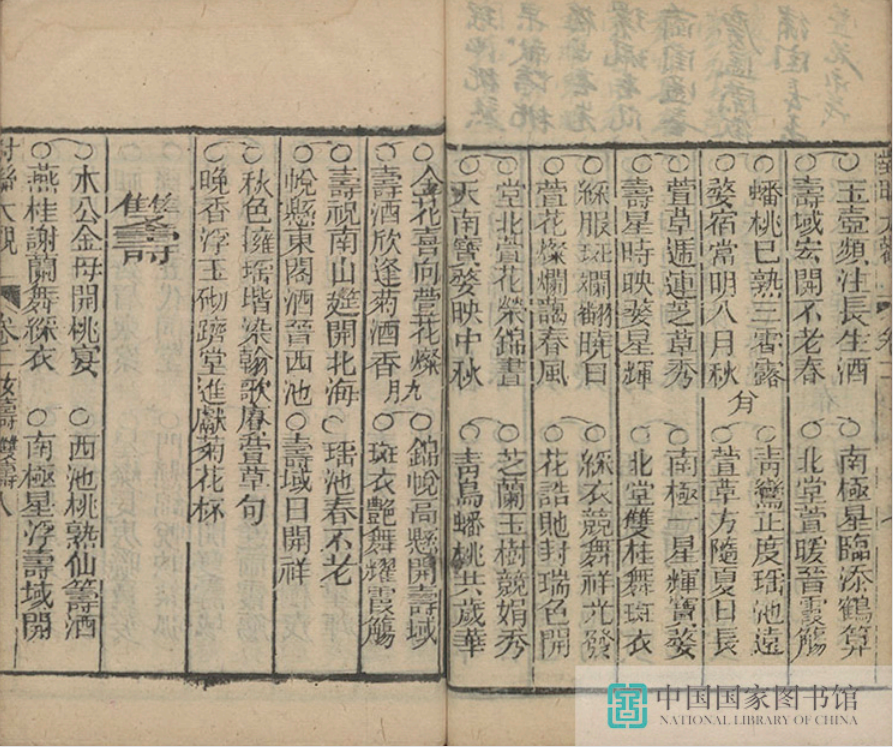 ○玉壺頻注長生酒　○南極星臨添鶴算
○壽域宏開不老春　○北堂萱暖晉霞觴
○蟠桃已熟三霄露　○青鸞正度瑤池遠
○婺宿當明八月秋　○萱草方隨夏日長
○萱草遞連芝草秀　○南極一星輝寶婺
○壽星時映婺星輝　○北堂雙桂舞斑衣
○綵服斑斕翻曉日　○綵衣競舞祥光發
○萱花燦爛藹春風　○花誥貤封瑞色開
○堂北萱花榮錦晝　○芝蘭玉樹競娟秀
○天南寶婺映中秋　○青鳥蟠桃共歲華
○金花喜向萱花燦 九月　○錦帨高懸開壽域
○壽酒欣逢菊酒香　○斑衣艷舞耀霞觴
○壽祝南山筵開北海　○瑤池春不老
○帨懸東閣酒晉西池　○壽域日開祥
○秋色擁瑤堦染翰歌賡萱草句
○晚香浮玉砌躋堂進獻菊花杯
雙壽
○木公金母開桃宴　○西池桃熟仙籌酒
○燕桂謝蘭舞綵衣　○南極星浮壽域開
對聯大觀 卷二 女壽 雙壽 八
中国国家图书馆
NATIONAL LIBRARY OF CHINA